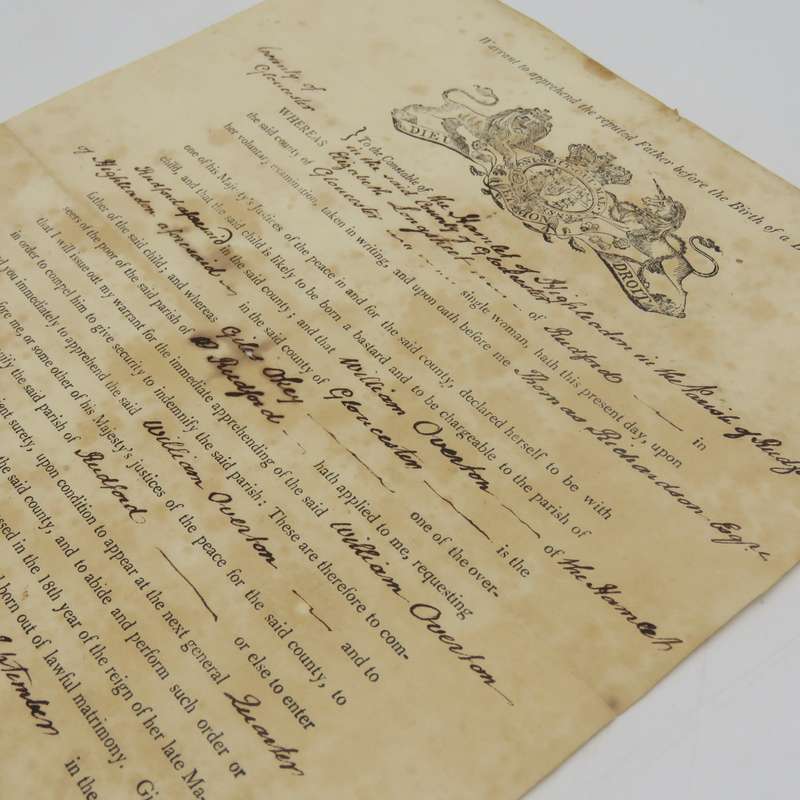 Warrant to apprehend the reputed Father before the Birth of a
DROIT
County of
Gloucester
To the Constable of the Hamlet of Highleadon in the Parish of
in the said County of Gloucester
WHEREAS Elizabeth of Rudford in
the said county of Gloucester single woman, hath this present day, upon
her voluntary examination, taken in writing, and upon oath before me Thomas Richardson Esqre
one of his Majesty's Justices of the peace in and for the said county, declared herself to be with
child, and that the said child is likely to be born a bastard and to be chargeable to the parish of
Rudford aforesaid in the said county; and that William Overton of the Hamlet
of Highleadon aforesaid in the said county of Gloucester is the
father of the said child; and whereas Giles Okey one of the over-
seers of the poor of the said parish of Rudford hath applied to me, requesting
that I will issue out my warrant for the immediate apprehending of the said William Overton
in order to compel him to give security to indemnify the said parish: These are therefore to com-
you immediately to apprehend the said William Overton and to
fore me, or some other of his Majesty's justices of the peace for the said county, to
nify the said parish of Rudford or else to enter
ient surety, upon condition to appear at the next general Quarter
the said county, and to abide and perform such order or
ssed in the 18th year of the reign of her late Ma-
born out of lawful matrimony. Gi
ptember in the